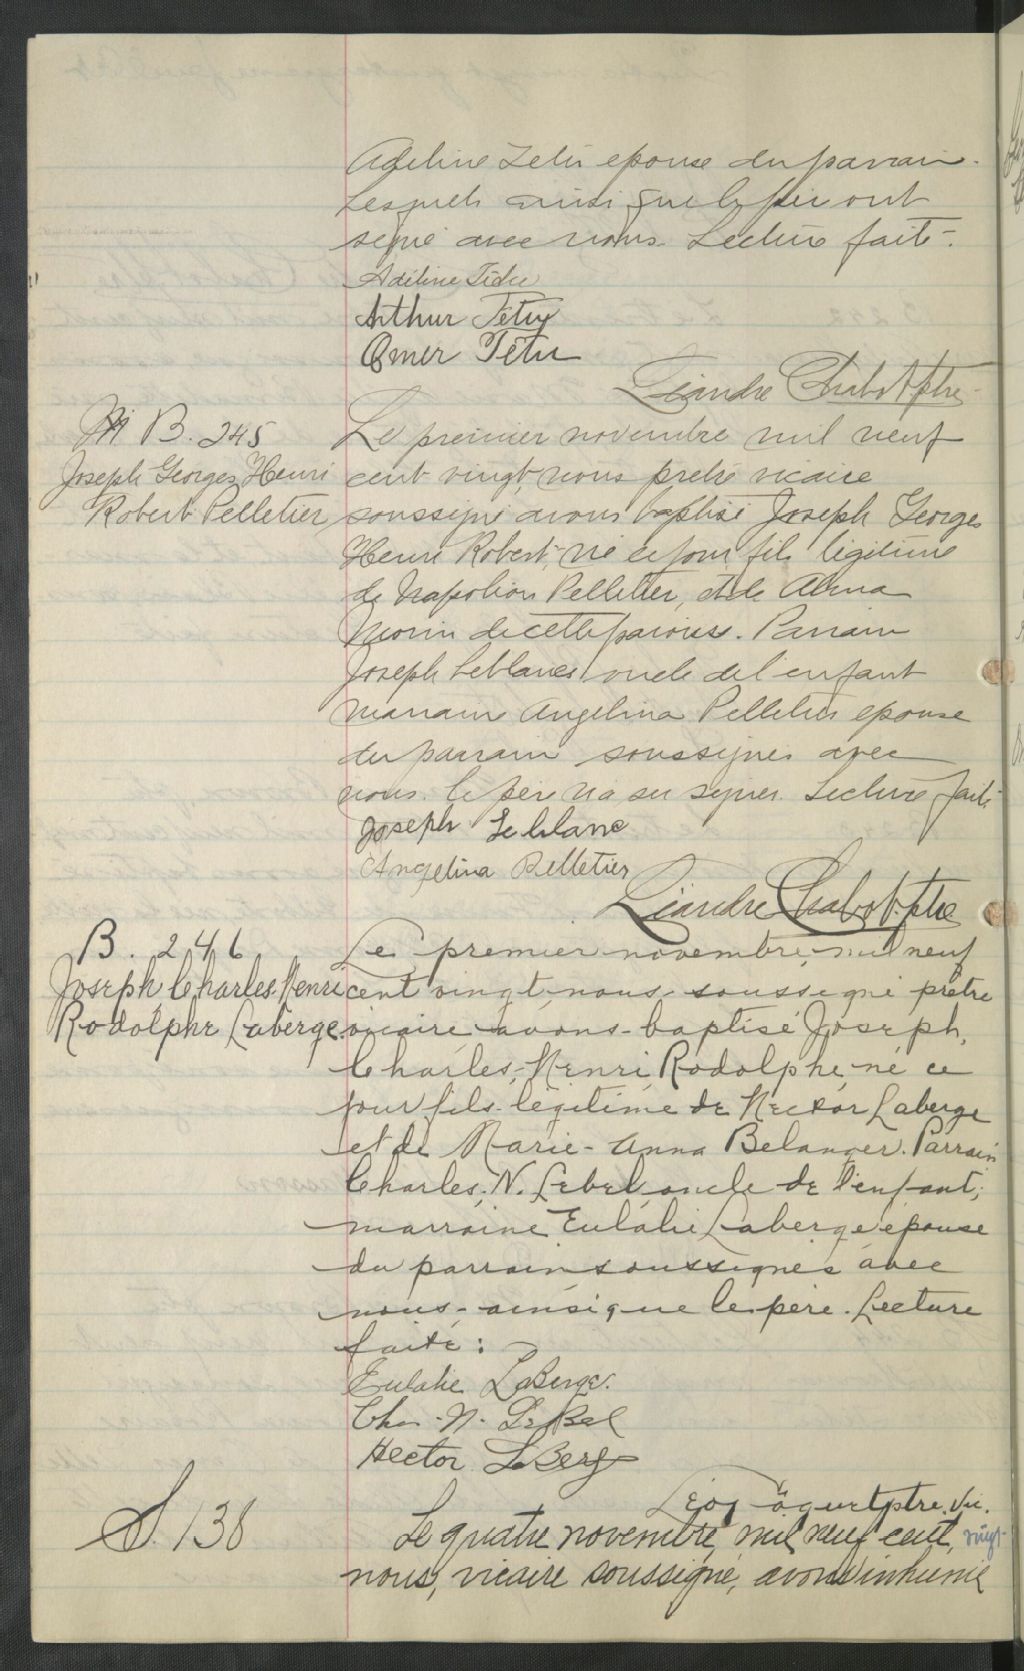 Adeline Tetu epouse du parrain.
Lesquels ainsi que le père ont
signé avec nous. Lecture faite.
Adéline Tétu
Arthur Tétu
Omer Tétu
Léandre Chabot ptre
B. 245
Joseph Georges Henri
Robert Pelletier
Le premier novembre mil neuf
cent vingt, nous pretre vicaire
soussigné avons baptisé Joseph Georges
Henri Robert, né ce jour fils légitime
de Napoléon Pelletier, et de
Morin de cette paroisse. Parrain
Joseph Leblanc oncle de l'enfant
marraine Angelina Pelletier epouse
du parrain soussignés avec
nous. le père n'a su signer. Lecture faite
Joseph Leblanc
Angelina Pelletier
Léandre Chabot ptre
B. 246
Joseph Charles Henri
Rodolphe Laberge.
Le premier novembre, mil neuf
cent vingt, nous soussigné prêtre
vicaire avons baptisé Joseph,
Charles, Henri, Rodolphe, né ce
jour fils légitime de Hector Laberge
et de Marie-Anna Belanger. Parrain
Charles. N. Lebel oncle de l'enfant;
marraine Eulalie Laberge épouse
du parrain soussignés avec
nous ainsi que le père. Lecture
faite:
Eulalie LaBerge.
Chas. N. LeBel
Hector LaBerge
ptre. vic.
S. 138
Le quatre novembre, mil neuf cent, vingt
nous, vicaire soussigné, avons inhumé